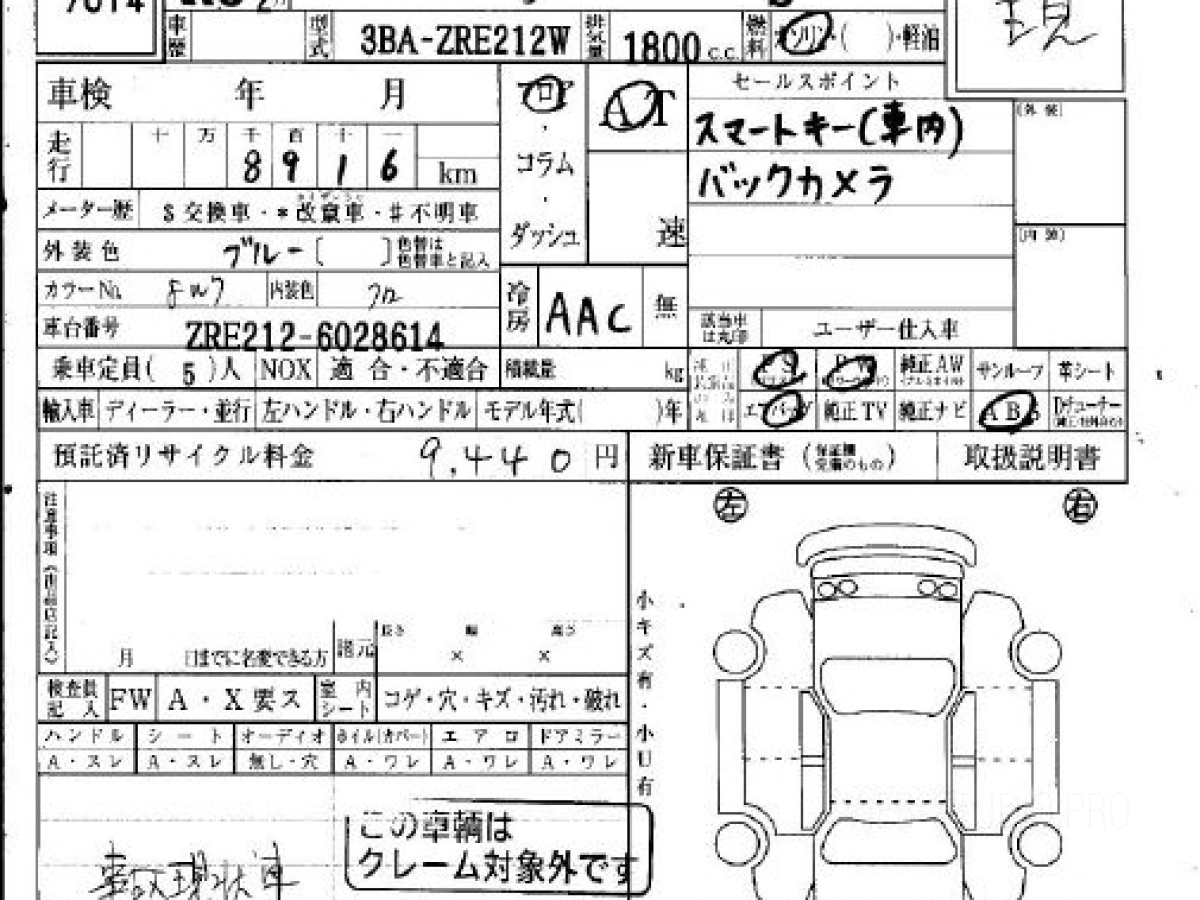 7014
車歴 型式 3BA-ZRE212W 排気量 1800 c.c. 燃料 ガソリン・( )・軽油
車検 年 月 フロア AT セールスポイント
走行 十 万 千 百 十 一
8 9 1 6 km
・コラム・ダッシュ 速
スマートキー(車内)
バックカメラ
(外装)
(内装)
メーター歴 $交換車・*改竄車・#不明車
外装色 ブルー [ ] 色替は色替車と記入
カラーNo. 8W7 内装色 クロ
冷房 AAC 無
該当車は丸印 ユーザー仕入車
車台番号 ZRE212-6028614
乗車定員( 5 )人 NOX 適合・不適合 積載量 kg PS PW 純正AW サンルーフ 革シート
輸入車 ディーラー・並行 左ハンドル・右ハンドル モデル年式( )年 エアバッグ 純正TV 純正ナビ ABS Dチューナー
預託済リサイクル料金 9,440 円 新車保証書 (保証欄完備のもの) 取扱説明書
注意事項(出品店記入)
左 右
月 日までに名変できる方 諸元 長さ × 幅 × 高さ
小キズ有・小U有
検査員記入 FW A・X要ス 室内シート コゲ・穴・キズ・汚れ・破れ
ハンドル シート オーディオ ホイル(カバー) エアロ ドアミラー
A・スレ A・スレ 無し・穴 A・ワレ A・ワレ A・ワレ
この車輌は
クレーム対象外です
事故現状車